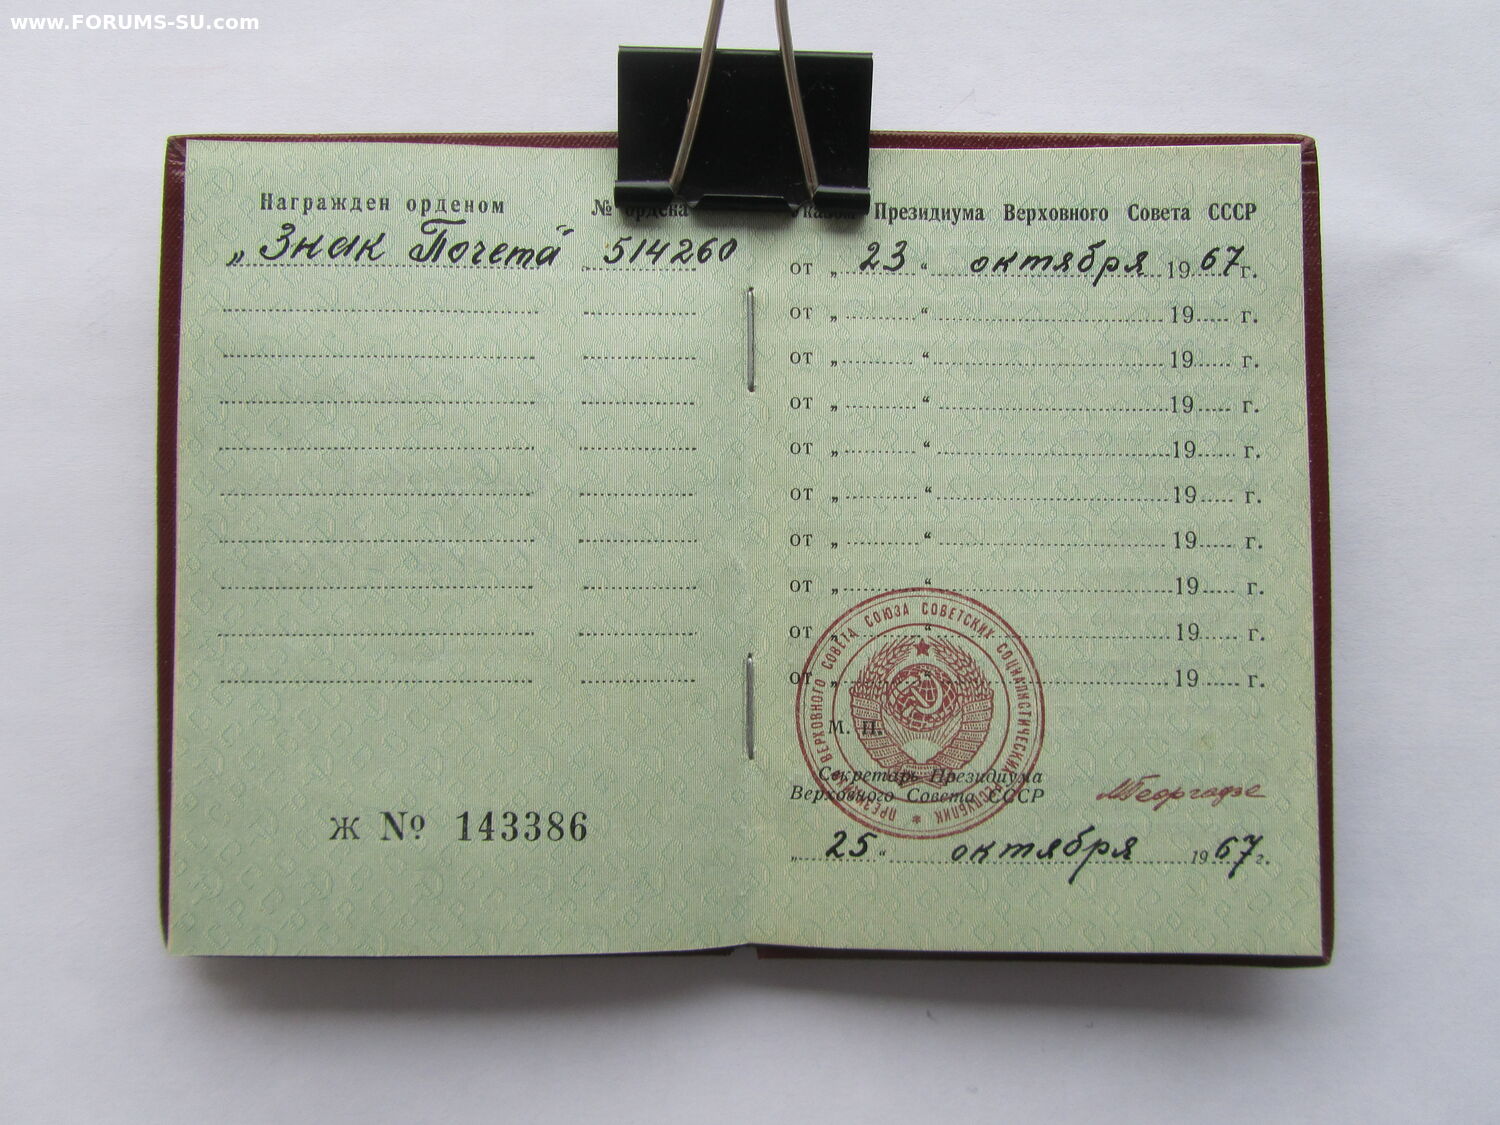 www.FORUMS-SU.com
Награжден орденом № ордена
„Знак Почета“ 514260
Ж № 143386
Указом Президиума Верховного Совета СССР
от „ 23 “ октября 19 67 г.
от „ “ 19 г.
от „ “ 19 г.
от „ “ 19 г.
от „ “ 19 г.
от „ “ 19 г.
от „ “ 19 г.
от „ “ 19 г.
от „ “ 19 г.
от „ “ 19 г.
М. П.
ПРЕЗИДИУМ ВЕРХОВНОГО СОВЕТА СОЮЗА СОВЕТСКИХ СОЦИАЛИСТИЧЕСКИХ РЕСПУБЛИК
Секретарь Президиума
Верховного Совета СССР МГеоргадзе
„ 25 “ октября 19 67 г.